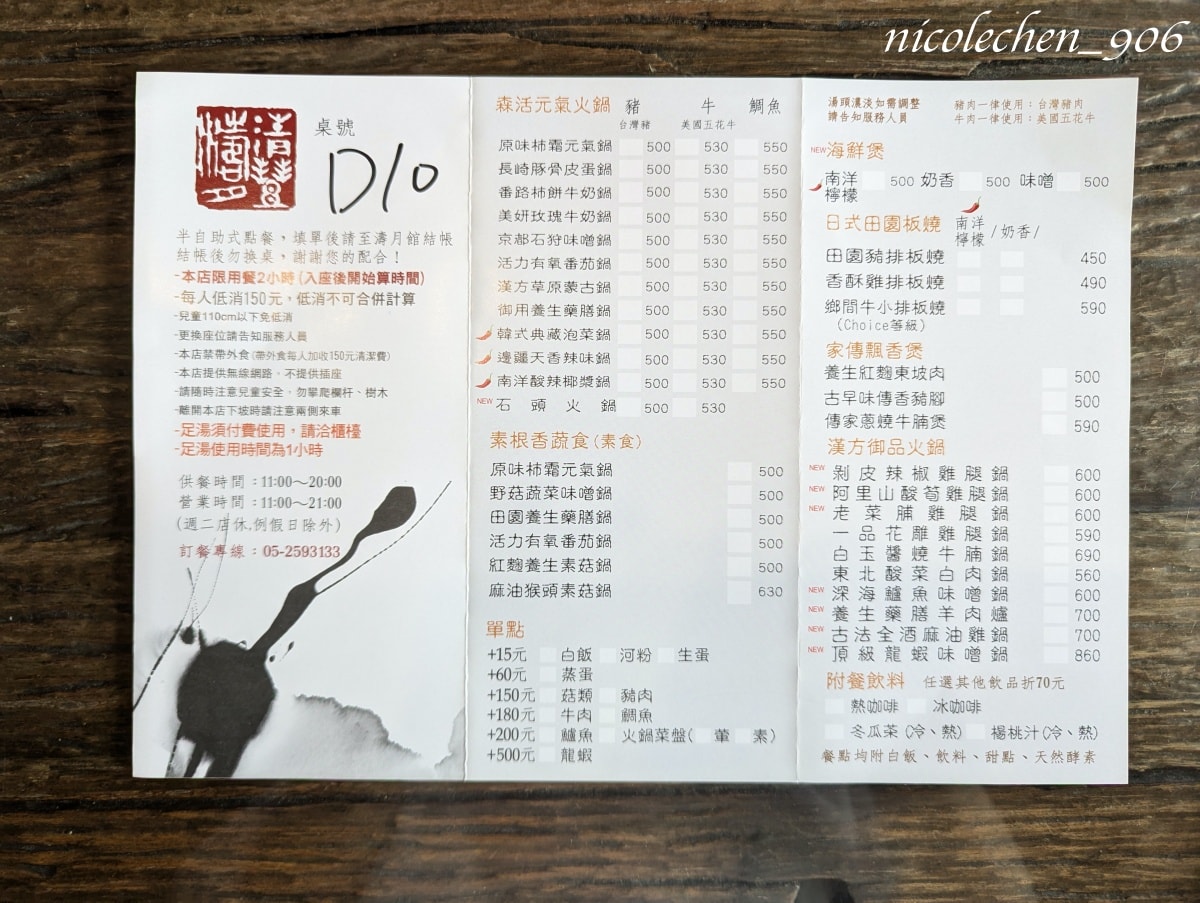 nicolechen_906
清豐濤月
桌號
D10
半自助式點餐，填單後請至濤月館結帳
結帳後勿換桌，謝謝您的配合！
-本店限用餐2小時(入座後開始算時間)
-每人低消150元，低消不可合併計算
-兒童110cm以下免低消
-更換座位請告知服務人員
-本店禁帶外食(帶外食每人加收150元清潔費)
-本店提供無線網路，不提供插座
-請隨時注意兒童安全，勿攀爬欄杆、樹木
-離開本店下坡時請注意兩側來車
-足湯須付費使用，請洽櫃檯
-足湯使用時間為1小時
供餐時間：11:00～20:00
營業時間：11:00～21:00
(週二店休，例假日除外)
訂餐專線：05-2593133
森活元氣火鍋 豬 牛 鯛魚
台灣豬 美國五花牛
原味柿霜元氣鍋 500 530 550
長崎豚骨皮蛋鍋 500 530 550
番路柿餅牛奶鍋 500 530 550
美妍玫瑰牛奶鍋 500 530 550
京都石狩味噌鍋 500 530 550
活力有氧番茄鍋 500 530 550
漢方草原蒙古鍋 500 530 550
御用養生藥膳鍋 500 530 550
韓式典藏泡菜鍋 500 530 550
邊疆天香辣味鍋 500 530 550
南洋酸辣椰漿鍋 500 530 550
NEW 石頭火鍋 500 530
素根香蔬食(素食)
原味柿霜元氣鍋 500
野菇蔬菜味噌鍋 500
田園養生藥膳鍋 500
活力有氧番茄鍋 500
紅麴養生素菇鍋 500
麻油猴頭素菇鍋 630
單點
+15元 白飯 河粉 生蛋
+60元 蒸蛋
+150元 菇類 豬肉
+180元 牛肉 鯛魚
+200元 鱸魚 火鍋菜盤( 葷 素)
+500元 龍蝦
湯頭濃淺如需調整 豬肉一律使用：台灣豬肉
請告知服務人員 牛肉一律使用：美國五花牛
NEW 海鮮煲
南洋檸檬 500 奶香 500 味噌 500
日式田園板燒 南洋檸檬 /奶香/
田園豬排板燒 450
香酥雞排板燒 490
鄉間牛小排板燒 590
(Choice等級)
家傳飄香煲
養生紅麴東坡肉 500
古早味傳香豬腳 500
傳家蔥燒牛腩煲 590
漢方御品火鍋
NEW 剝皮辣椒雞腿鍋 600
NEW 阿里山酸筍雞腿鍋 600
NEW 老菜脯雞腿鍋 600
一品花雕雞腿鍋 590
白玉醬燒牛腩鍋 690
東北酸菜白肉鍋 560
NEW 深海鱸魚味噌鍋 600
NEW 養生藥膳羊肉爐 700
NEW 古法全酒麻油雞鍋 700
NEW 頂級龍蝦味噌鍋 860
附餐飲料 任選其他飲品折70元
熱咖啡 冰咖啡
冬瓜茶(冷、熱) 楊桃汁(冷、熱)
餐點均附白飯、飲料、甜點、天然酵素